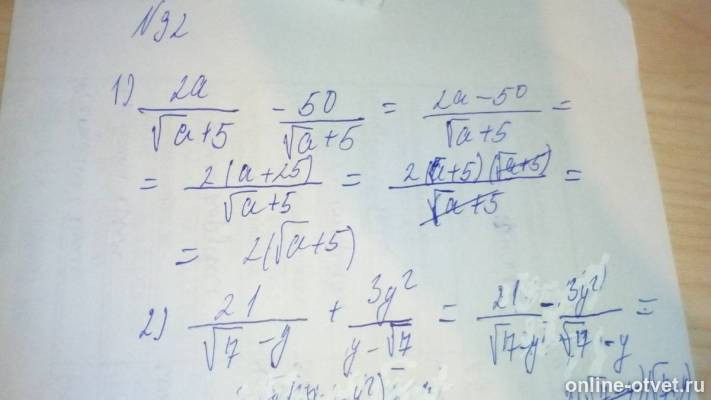 №92
1) 2a/(√a+5) - 50/(√a+5) = (2a-50)/(√a+5) =
= 2(a+25)/(√a+5) = 2(√a+5)(√a+5)/(√a+5) =
= 2(√a+5)
2) 21/(√7-y) + 3y²/(y-√7) = 21/(√7-y) - 3y²/(√7-y) =
online-otvet.ru